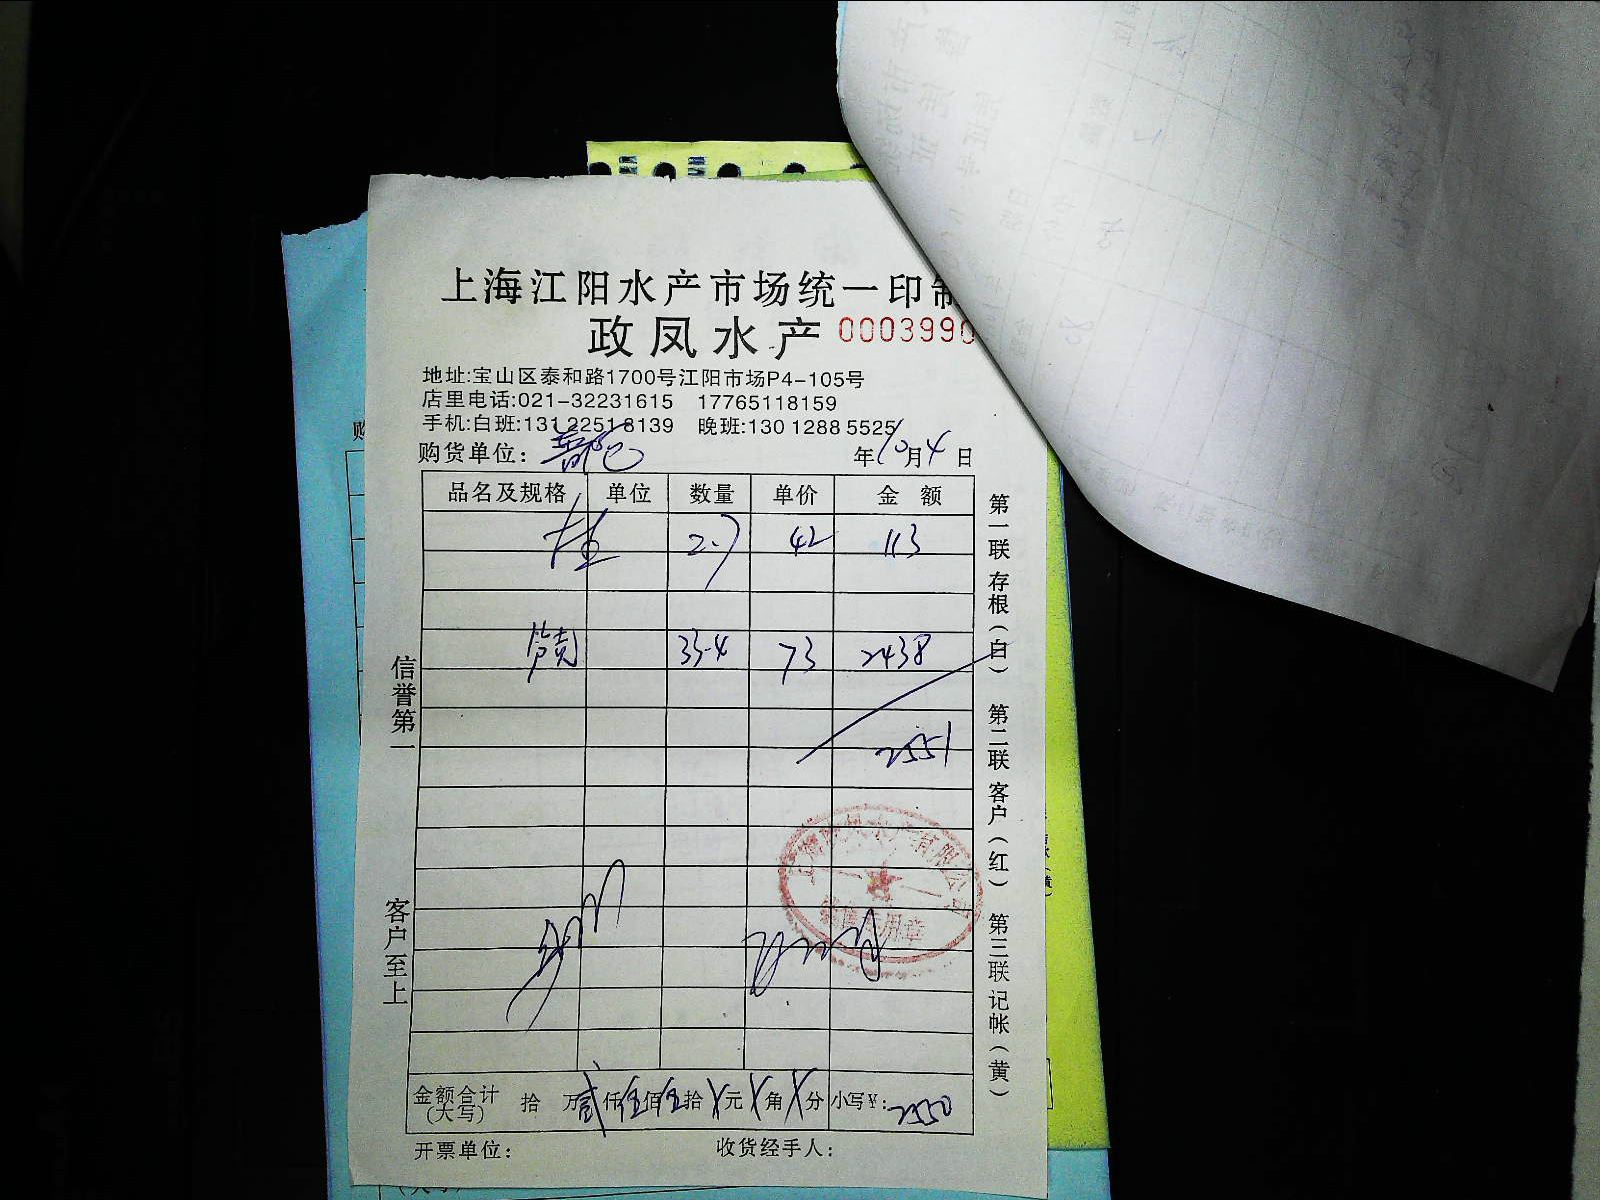 上海江阳水产市场统一印制
政凤水产 000399
地址:宝山区泰和路1700号江阳市场P4-105号
店里电话:021-32231615 17765118159
手机:白班:13122518139 晚班:130 1288 5525
购货单位: 年10月4日
品名及规格 单位 数量 单价 金额
2.7 42 113
33.4 73 2438
2551
金额合计(大写) 拾 万贰仟伍佰伍拾 元 角 分 小写¥: 2550
开票单位: 收货经手人:
信誉第一 客户至上
第一联 存根(白) 第二联 客户(红) 第三联 记帐(黄)
有限公司
用章